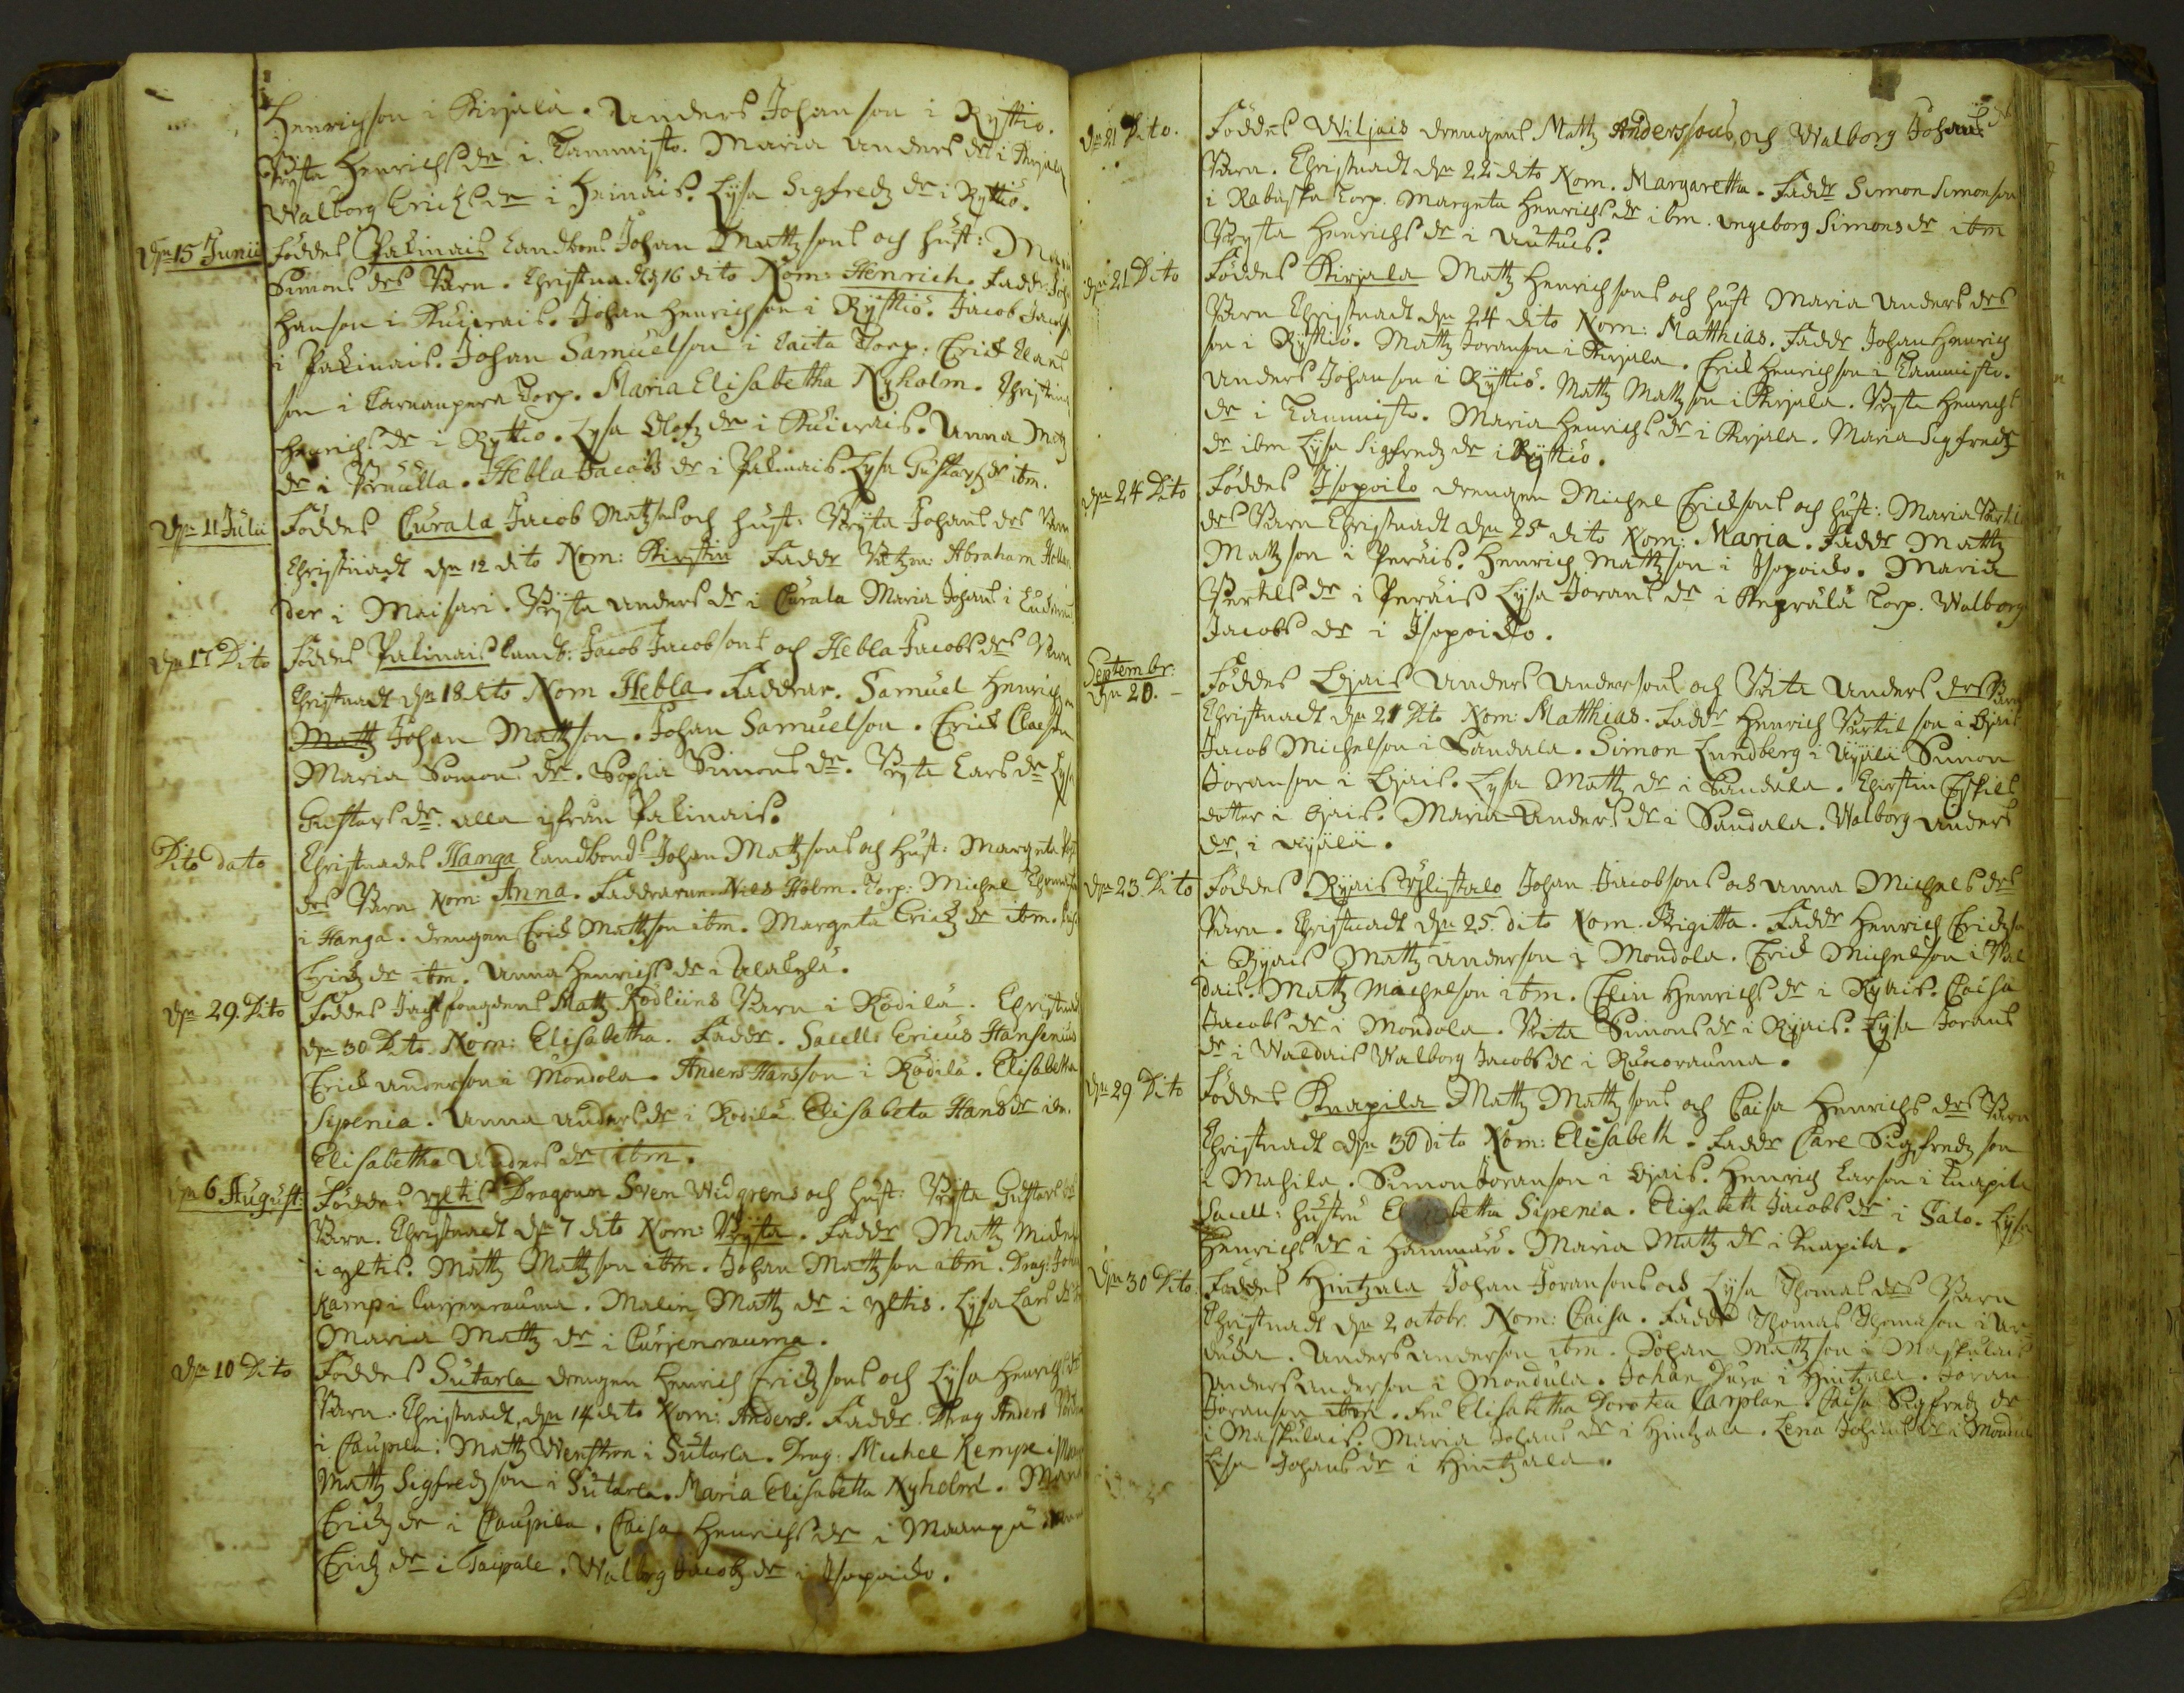 Henrichson i Kirjala. Anders Johanson i Ryttiö.
Brijta Henrichs dr i Tammisto. Maria Anders dr i Kirjala
Walborg Erichs dr i Heinäis. Lijsa Sigfredz dr i Ryttiö.
dn 15 Junii Föddes Pakinais Landbons Johan Mattzsons och hust:
Simons drs Barn. Christnadt 16 dito Nom: Henrich. Fadd:
Hanson i Kuivais. Johan Henrichson i Ryttiö. Jacob
i Pakinais. Johan Samuelson i Torp: Erick
son i Torp. Maria Elisabetha Nyholm.
Henrichs dr i Ryttiö. Lijsa Olofz dr i Kuivais. Anna
dr i. Hebla Jacobs dr i Pakinais. Lijsa Gustafz dr ibm.
dn 11 Julii Föddes Curala Jacob Matzsons och hust: Brijta Johans drs Barn
Christnadt dn 12 dito Nom: Kirstin Faddr Abraham
der i Maisari. Brijta Anders dr i Curala Maria Johans i
dn 17 Dito Föddes Pakinais Landb: Jacob Jacobsons och Hebla Jacobs drs Barn
Christnadt dn 18 dito Nom Hebla. Faddrar. Samuel Henrichson
Mattz Johan Mattzson. Johan Samuelson. Erick Claesson
Maria Simons dr. Sophia Simons dr. Brijta Lars dr Lijsa
Gustafs dr. alla ifrån Pakinais.
Dito dato Christnades Hanga Landbonds Johan Mattzsons och hust: Margeta
drs Barn Nom: Anna. Faddrarne Nils Holm. Torp: Michel
i Hanga. drengen Erich Mattzson ibm. Margeta Erichz dr ibm.
Erichz dr ibm. Anna Henrichs dr i Alakylä.
dn 29. Dito Föddes Mattz Rödliins Barn i Rödilä. Christnadt
dn 30 Dito. Nom: Elisabetha. Faddr. Sacell: Ericus Hansenius
Erich Anderson i Mondola. Anders Hansson i Rödilä. Elisabetha
Sipenia. Anna Anders dr i Rödilä. Elisabeta Hans dr ibm.
Elisabetha Anders dr ibm.
dn 6 August: Föddes Yltis Dragoun Sven Widgrens och hust: Brijta Gustafs
Barn. Christnadt dn 7 dito Nom: Brijta. Faddr Mattz
i yltis. Mattz Mattzson ibm. Johan Mattzson ibm. Drag: Johan
Kamp i Curjenrauma. Malin Mattz dr i yltis. Lijsa Lars dr
Maria Mattz dr i Curjenrauma.
dn 10 Dito Föddes Sutarla drengen Henrich Erichsons och Lijsa Henrichs drs
Barn. Christnadt dn 14 dito Nom: Anders. Faddr. Drag Anders
i Caupila. Mattz Wenstron i Sutarla. Drag: Michel Kempe i
Mattz Sigfredzson i Sutarla. Maria Elisabetta Nyholm.
Erichz dr i Caupila. Caisa Henrichs dr i
Erichz dr i Taipale. Walborg Jacobz dr i Isopoido.
dn 21 Dito. Föddes Wiljais drengens Mattz Anderssons och Walborg Johans drs
Barn. Christnadt dn 22 dito Nom. Margaretha. Faddr Simon Simonson
i Torp. Margeta Henrichs dr ibm. Ingeborg Simons dr ibm
Brijta Henrichs dr i Autuis.
dn 21 Dito Föddes Kirjala Mattz Henrichsons och hust Maria Anders drs
Barn Christnadt dn 24 dito Nom: Matthias. Faddr Johan Henrich
son i Ryttiö. Mattz Joranson i Kirjala. Erich Henrichson i Tammisto.
Anders Johanson i Ryttiö. Mattz Mattzson i Kirjala. Brijta Henrichs
dr i Tammisto. Maria Henrichs dr i Kirjala. Maria Sigfredz
dr ibm Lijsa Sigfredz dr i Ryttiö.
dn 24 Dito Föddes Isopoido drengen Michel Erichsons och hust: Maria Bertils
drs Barn Christnadt dn 25 dito Nom: Maria. Faddr Mattz
Mattzson i Peräis. Henrich Mattzson i Isopoido. Maria
Bertils dr i Peräis Lijsa Jorans dr i Torp. Walborg
Jacobs dr i Isopoido.
Septembr:
dn 20. Föddes Lijais Anders Andersons och Brita Anders drs Barn
Christnadt dn 21 Dito Nom: Matthias. Faddr Henrich Bertilson i Lijais
Jacob Michelson i Sandala. Simon Lundberg i Äijälä Simon
Joranson i Lijais. Lijsa Mattz dr i Sandala. Kirstin Eskils
dotter i Lijais. Maria Anders dr i Sandala. Walborg Anders
dr i Äijälä.
dn 23. Dito Föddes Ryiais Johan Jacobsons och Anna Michels drs
Barn. Christnadt dn 25. dito Nom. Brigitta. Faddr Henrich Erichson
i Ryiais Mattz Anderson i Mondola. Erich Michelson i Wal
dais. Mattz Michelson ibm. Elin Henrichs dr i Ryiais. Caisa
Jacobs dr i Mondola. Brita Simons dr i Ryiais. Lijsa Jorans
dr i Waldais Walborg Jacobs dr i Ruocorauma.
dn 29 Dito Föddes Knapila Mattz Mattzsons och Caisa Henrichs drs Barn
Christnadt dn 30 dito Nom: Elisabeth. Faddr Carl Sigfredzson
i Mahila. Simon Joranson i Lijais. Henrich Larson i Knapila
Sacell: hustru Elisabetha Sipenia. Elisabeth Jacobs dr i Salo. Lijsa
Henrichs dr i Hammarö. Maria Mattz dr i Knapila.
dn 30 Dito. Föddes Hintzala Johan Joransons och Lijsa Thomas drs Barn
Christnadt dn 2 octobr. Nom: Caisa. Faddr Thomas Thomason i
Anders Anderson ibm. Johan Mattzson i Maskulais
Anders Anderson i Mondula. Johan Dura i Hintzala. Joran
Joranson ibm. Fru Elisabetha Dorotea Carplan. Caisa Sigfredz dr
i Maskulais. Maria Johans dr i Hintzala. Lena Johans dr i Mondula
Lijsa Johans dr i Hintzala.